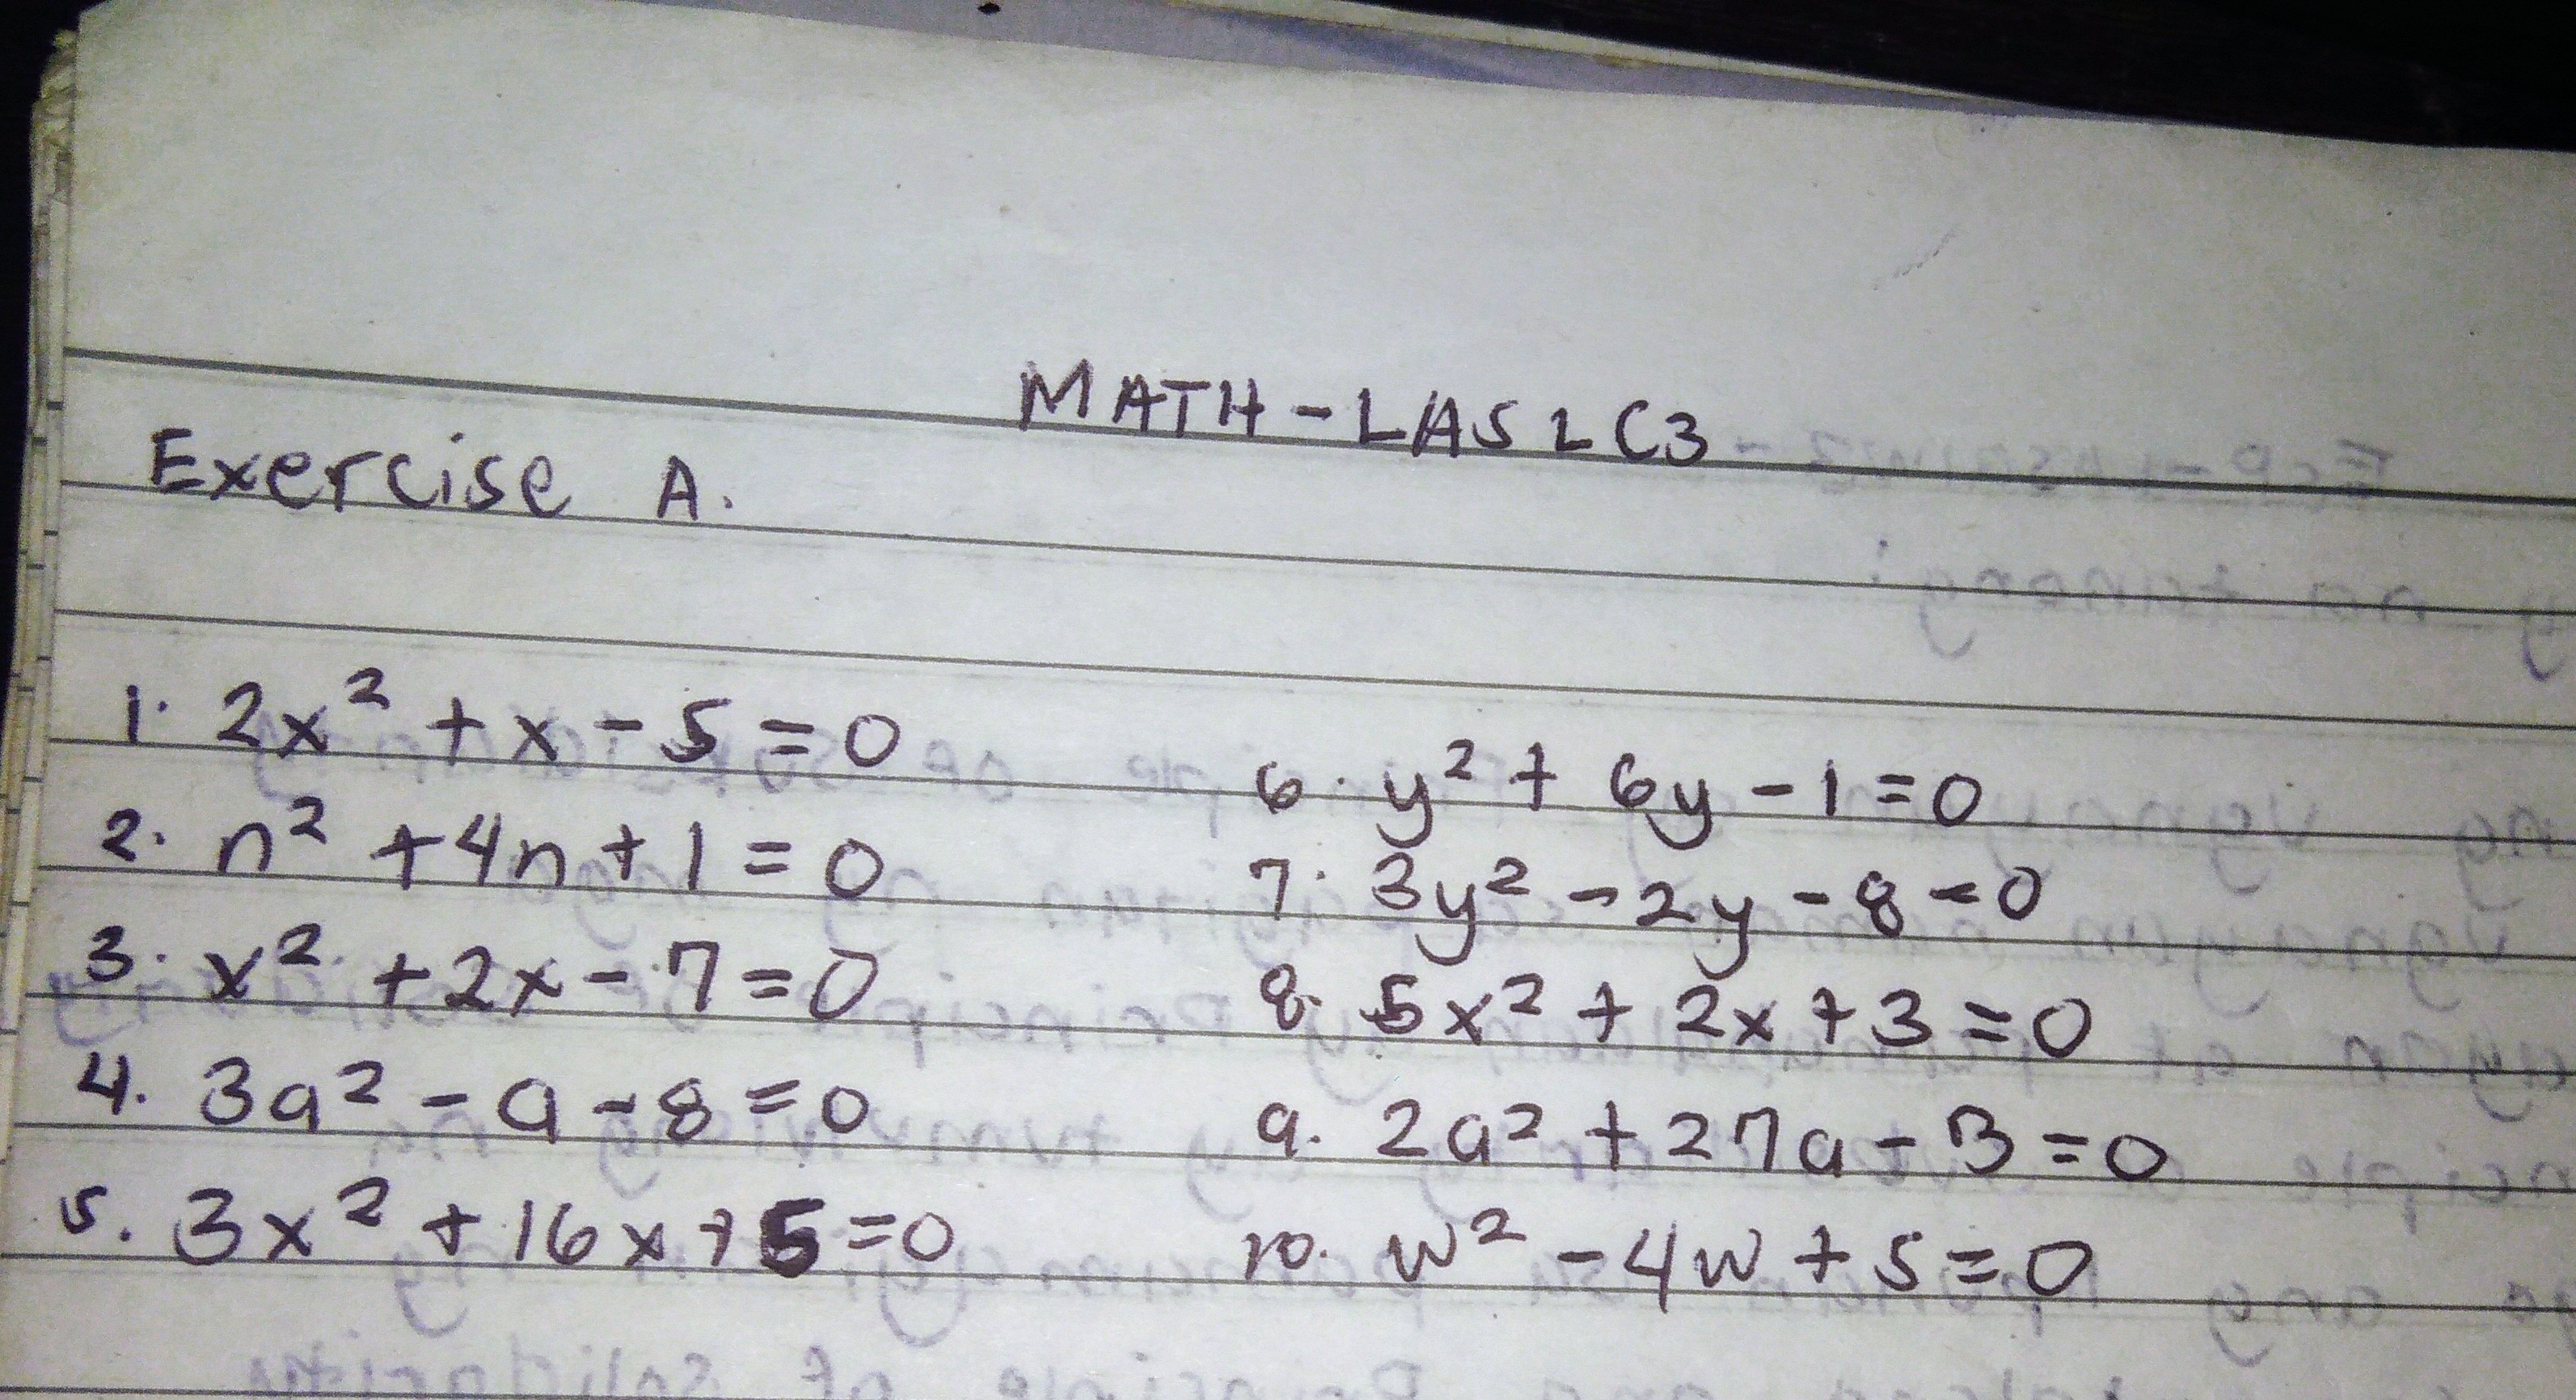 MATH - LAS 2 C3
Exercise A.
1. 2x² + x - 5 = 0
2. n² + 4n + 1 = 0
3. x² + 2x - 7 = 0
4. 3a² - a - 8 = 0
5. 3x² + 16x + 5 = 0
6. y² + 6y - 1 = 0
7. 3y² - 2y - 8 = 0
8. 5x² + 2x + 3 = 0
9. 2a² + 27a - 3 = 0
10. w² - 4w + 5 = 0